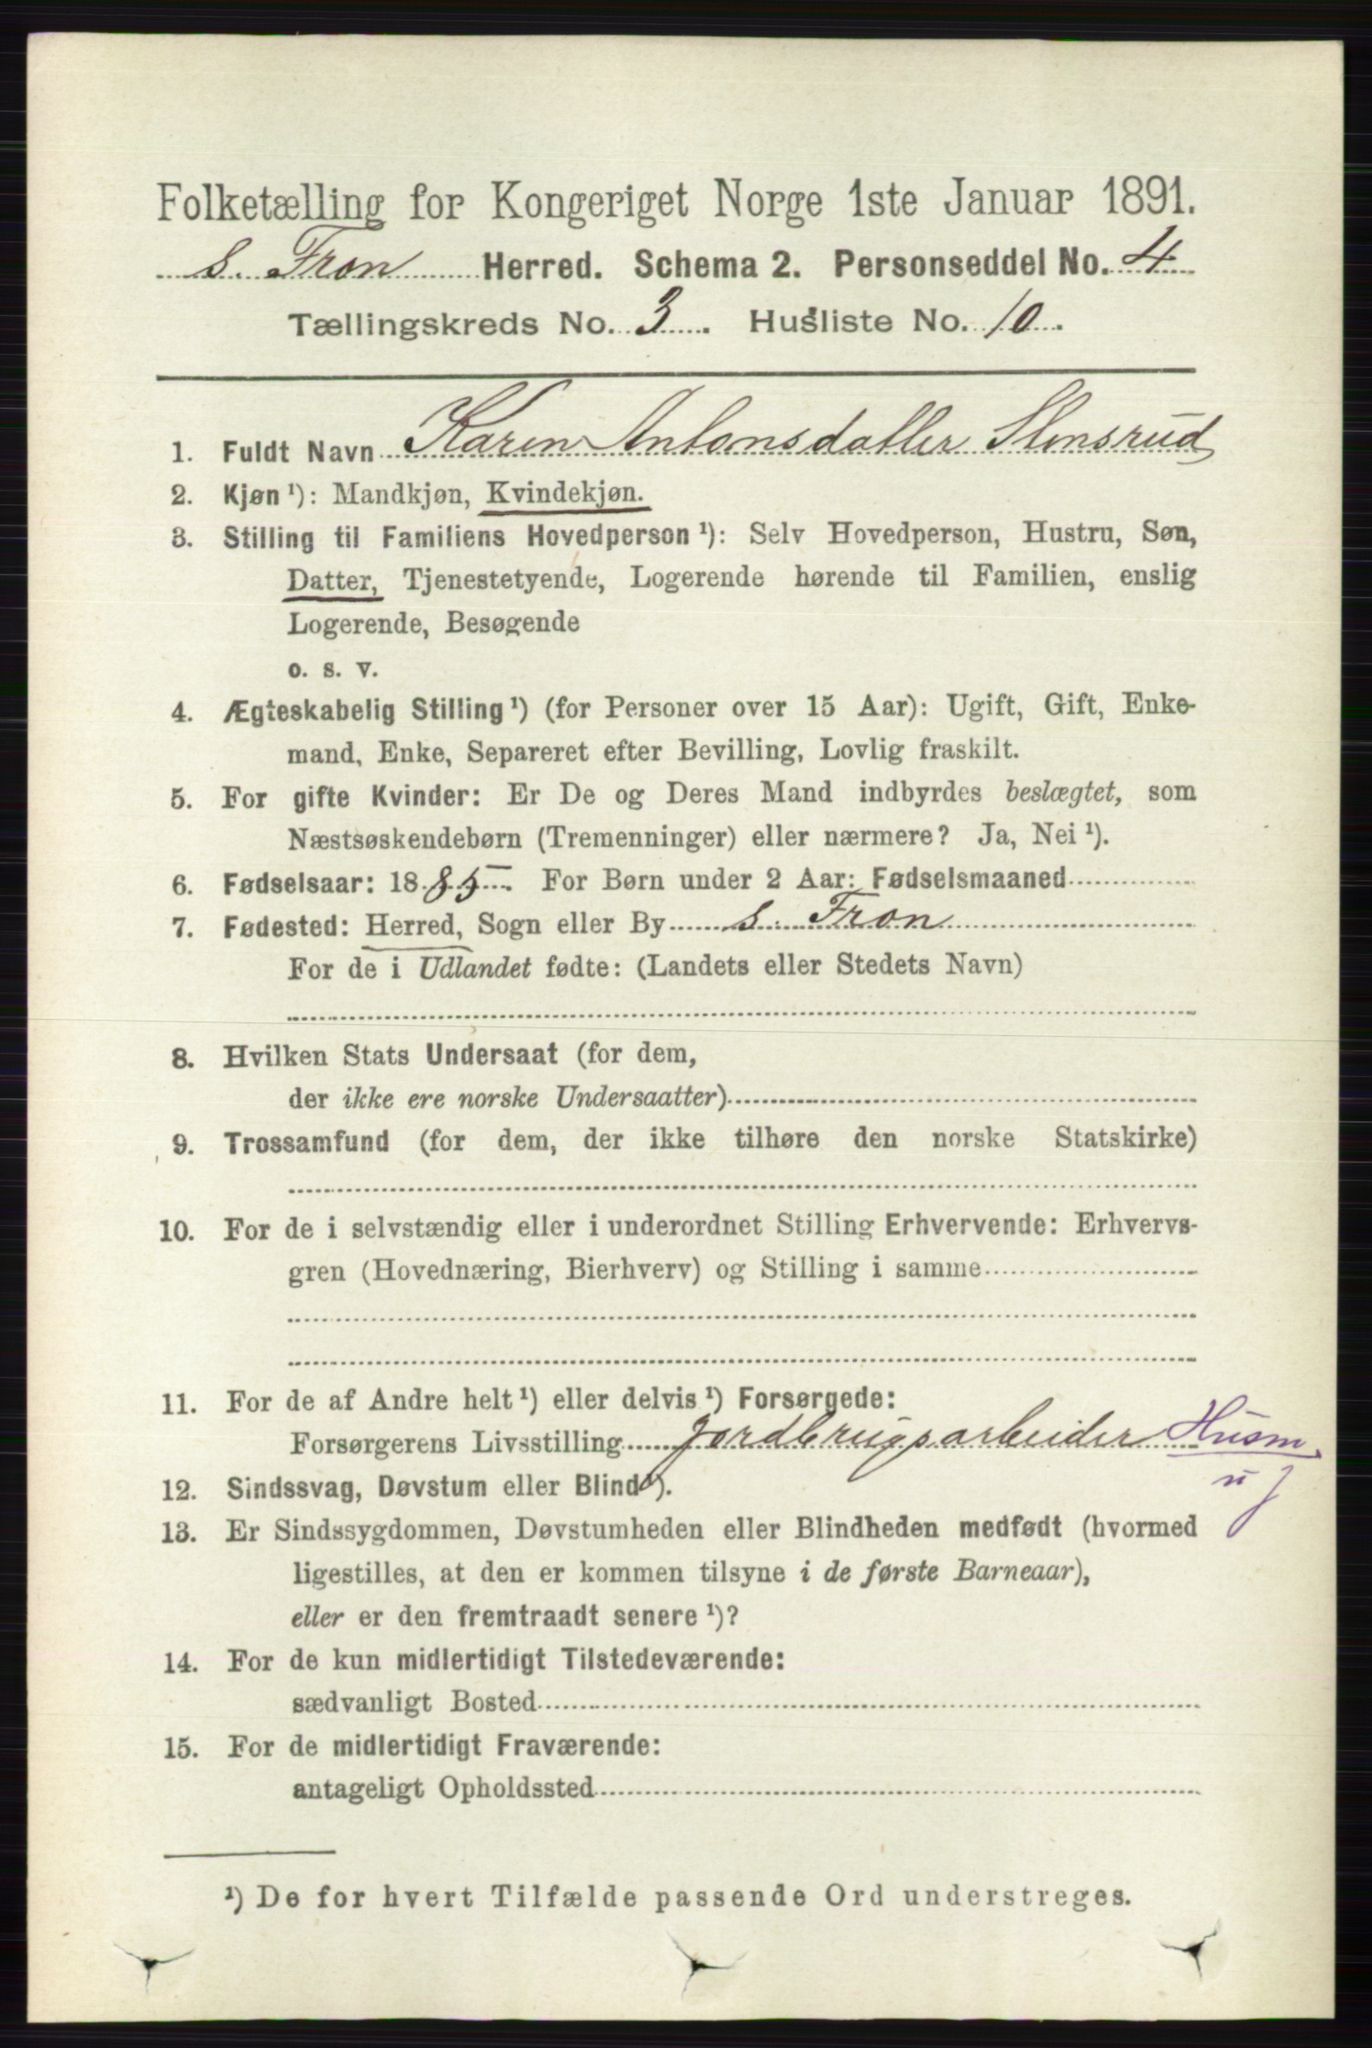 Folketælling for Kongeriget Norge 1ste Januar 1891.
S. Fron Herred. Schema 2. Personseddel No. 4
Tællingskreds No. 3. Husliste No. 10.
1. Fuldt Navn Karen Antonsdatter Stensrud
2. Kjøn ¹): Mandkjøn, Kvindekjøn.
3. Stilling til Familiens Hovedperson ¹): Selv Hovedperson, Hustru, Søn,
Datter, Tjenestetyende, Logerende hørende til Familien, enslig
Logerende, Besøgende
o. s. v.
4. Ægteskabelig Stilling ¹) (for Personer over 15 Aar): Ugift, Gift, Enke-
mand, Enke, Separeret efter Bevilling, Lovlig fraskilt.
5. For gifte Kvinder: Er De og Deres Mand indbyrdes beslægtet, som
Næstsøskendebørn (Tremenninger) eller nærmere? Ja, Nei ¹).
6. Fødselsaar: 1885. For Børn under 2 Aar: Fødselsmaaned
7. Fødested: Herred, Sogn eller By S. Fron
For de i Udlandet fødte: (Landets eller Stedets Navn)
8. Hvilken Stats Undersaat (for dem,
der ikke ere norske Undersaatter)
9. Trossamfund (for dem, der ikke tilhøre den norske Statskirke)
10. For de i selvstændig eller i underordnet Stilling Erhvervende: Erhvervs-
gren (Hovednæring, Bierhverv) og Stilling i samme
11. For de af Andre helt ¹) eller delvis ¹) Forsørgede:
Forsørgerens Livsstilling Jordbrugsarbeider Husm.
u j
12. Sindssvag, Døvstum eller Blind ¹).
13. Er Sindssygdommen, Døvstumheden eller Blindheden medfødt (hvormed
ligestilles, at den er kommen tilsyne i de første Barneaar),
eller er den fremtraadt senere ¹)?
14. For de kun midlertidigt Tilstedeværende:
sædvanligt Bosted
15. For de midlertidigt Fraværende:
antageligt Opholdssted
¹) De for hvert Tilfælde passende Ord understreges.